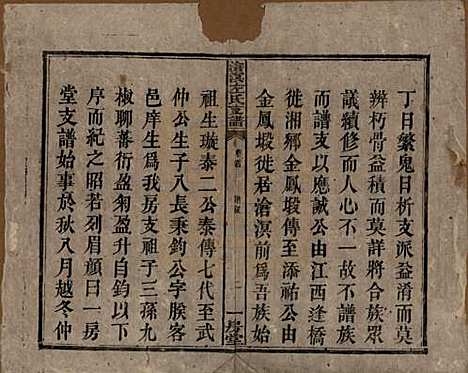 丁日繁鬼日析支派益淆而莫
辨朽骨益積而莫詳將合族眾
議續修而人心不一故不譜族
而譜支以應誠公由江西逢橋
徙湘鄉金鳳塅傳至添祐公由
金鳳塅徙君滄溟前爲吾族始
滄溟左氏支譜
卷首
一房堂
祖生璇泰二公泰傳七代至武
仲公生子八長秉鈞公字朕客
邑庠生爲我房支祖子三孫九
椒聊蕃衍盈匊盈升自鈞以下
序而紀之昭若列眉顔曰一房
堂支譜始事於秋八月越冬仲